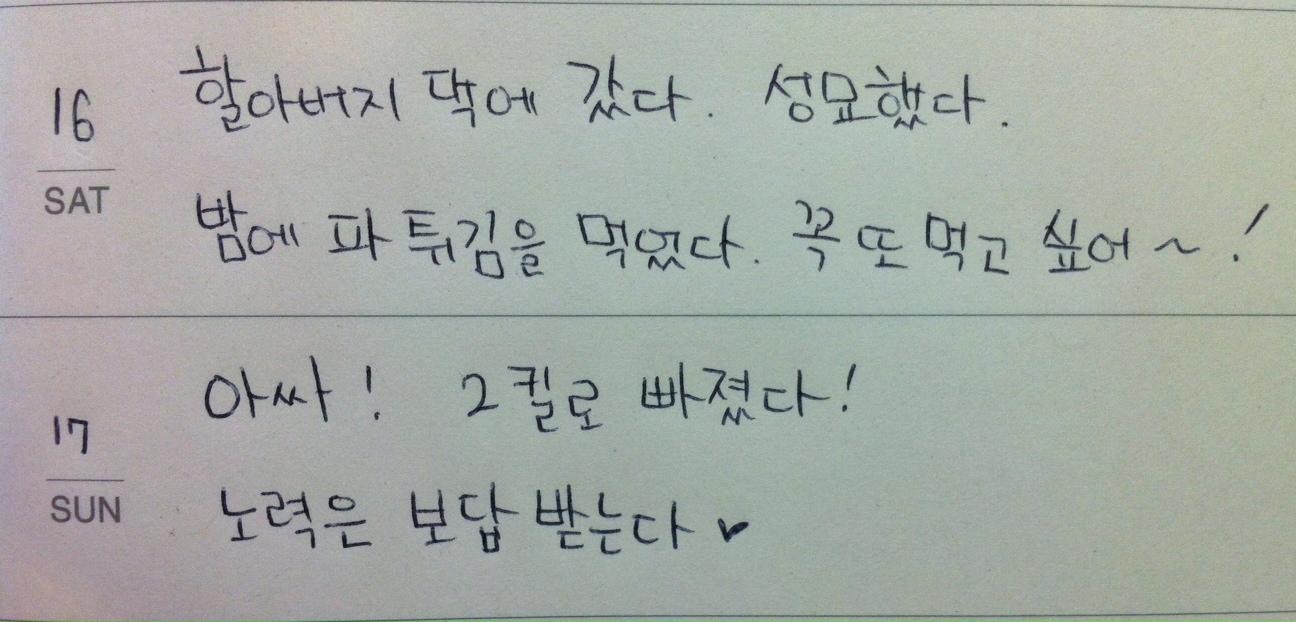 16
SAT
할아버지 댁에 갔다. 성묘했다.
밤에 파 튀김을 먹었다. 꼭 또 먹고 싶어~!
17
SUN
아싸! 2킬로 빠졌다!
노력은 보답 받는다♥